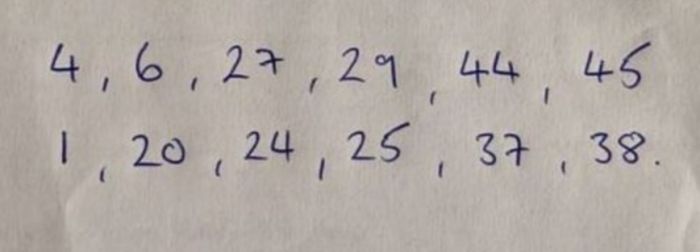 4, 6, 27, 29, 44, 45
1, 20, 24, 25, 37, 38.